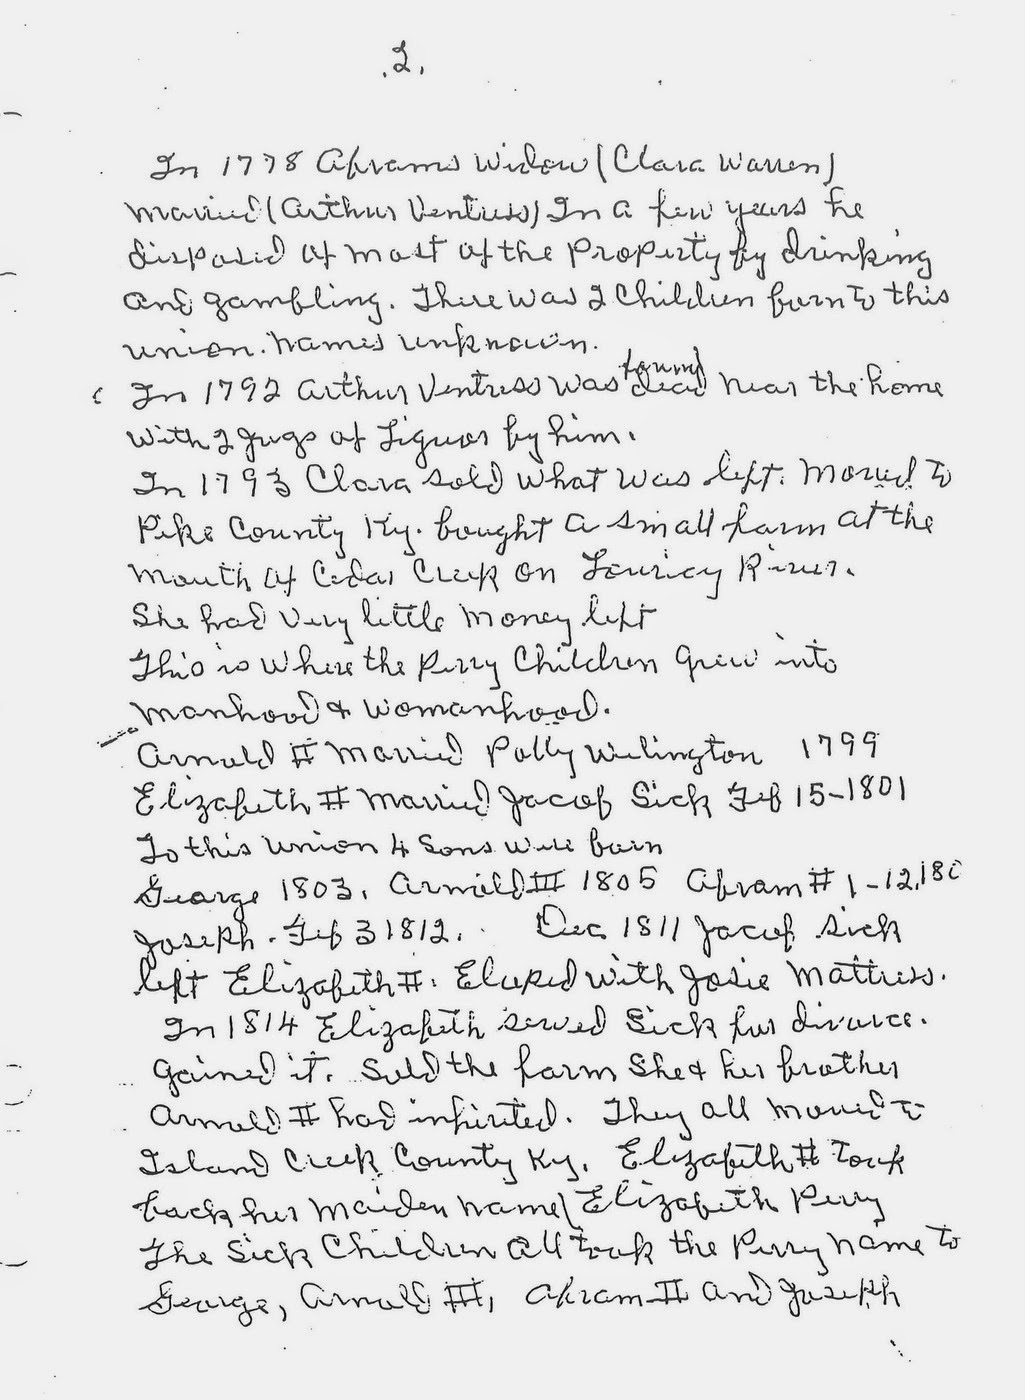 .2.
In 1778 Abrams Widow (Clara Warren)
Married (Arthur Ventress) In a few years he
disposed of most of the Property by drinking
and gambling. There was 2 Children born to this
union. Names unknown.
In 1792 Arthur Ventress was found dead near the home
with 2 Jugs of Liquor by him.
In 1793 Clara sold what was left. Moved to
Pike County Ky. bought a small farm at the
mouth of Cedar Creek on River.
She had very little money left
This is where the Perry Children grew into
manhood & womanhood.
Arnold II Married Polly Welington 1799
Elizabeth II Married Jacob Sick Feb 15-1801
To this union 4 Sons were born
George 1803, Arnold III 1805 Abram II 1-12,180
Joseph. Feb 3 1812. Dec 1811 Jacob Sick
left Elizabeth II. Eloped with Josie Mattress.
In 1814 Elizabeth served Sick for divorce.
gained it. Sold the farm She & her brother
Arnold II had inherited. They all moved to
Island Creek County Ky. Elizabeth II took
back her Maiden name (Elizabeth Perry
The Sick Children all took the Perry name to
George, Arnold III, Abram II and Joseph